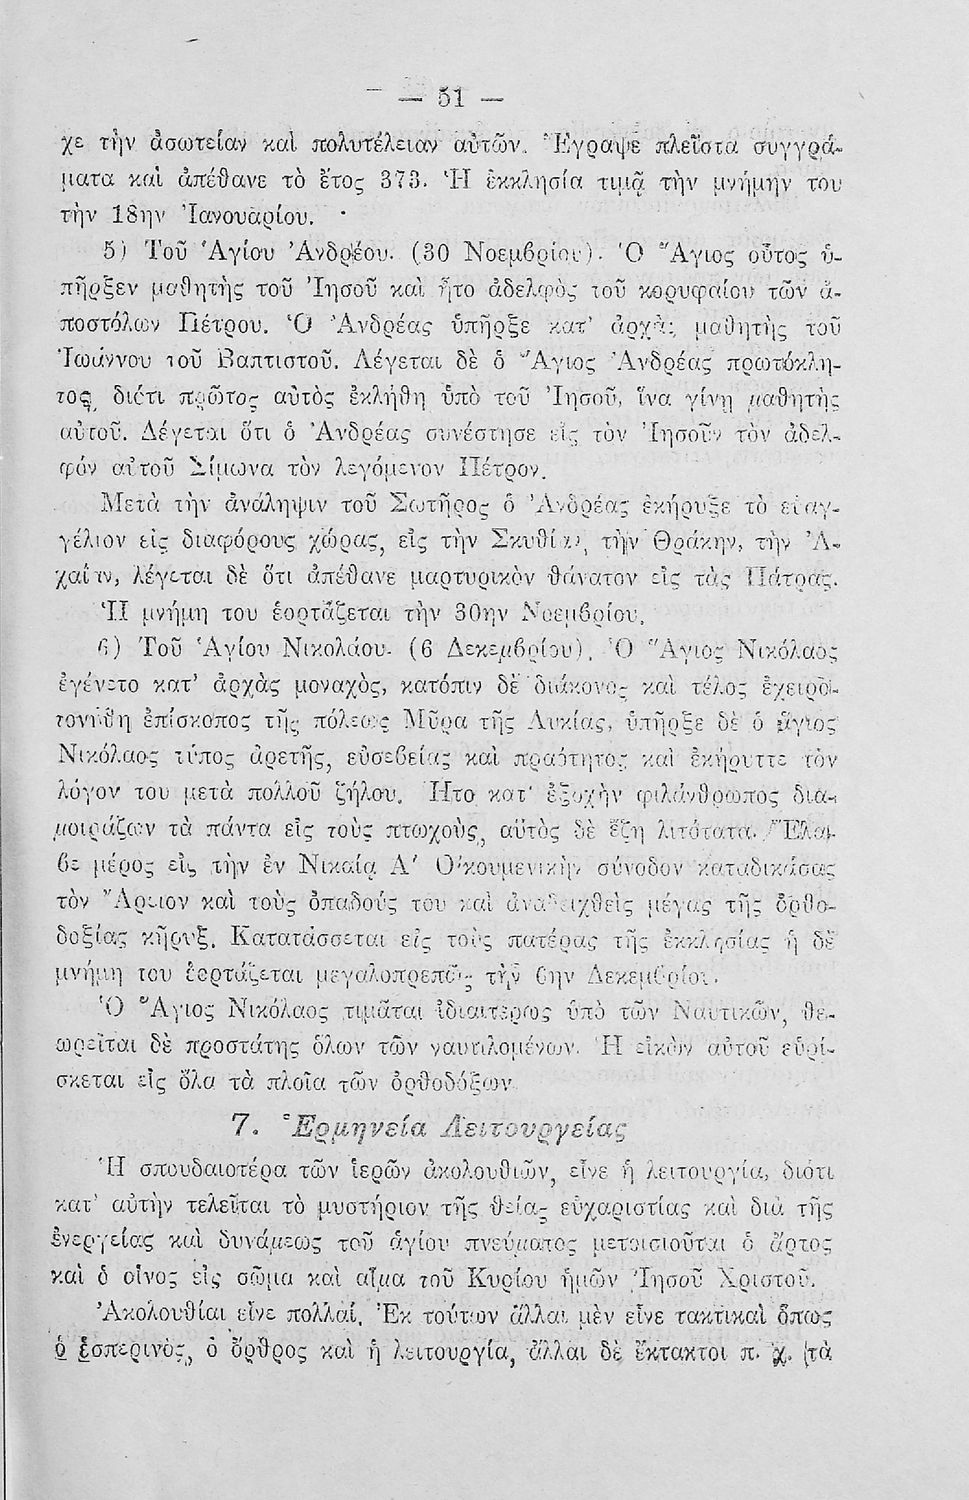 — 51 —
χε τὴν ἀσωτείαν καὶ πολυτέλειαν αὐτῶν. Ἔγραψε πλεῖστα συγγρά-
ματα καὶ ἀπέθανε τὸ ἔτος 373. Ἡ ἐκκλησία τιμᾷ τὴν μνήμην του
τὴν 18ην Ἰανουαρίου.
5) Τοῦ Ἁγίου Ἀνδρέου. (30 Νοεμβρίου). Ὁ Ἅγιος οὗτος ὑ-
πῆρξεν μαθητὴς τοῦ Ἰησοῦ καὶ ἦτο ἀδελφὸς τοῦ κορυφαίου τῶν ἀ-
ποστόλων Πέτρου. Ὁ Ἀνδρέας ὑπῆρξε κατ' ἀρχὰς μαθητὴς τοῦ
Ἰωάννου τοῦ Βαπτιστοῦ. Λέγεται δὲ ὁ Ἅγιος Ἀνδρέας πρωτόκλη-
τος, διότι πρῶτος αὐτὸς ἐκλήθη ὑπὸ τοῦ Ἰησοῦ, ἵνα γίνῃ μαθητὴς
αὐτοῦ. Λέγεται ὅτι ὁ Ἀνδρέας συνέστησε εἰς τὸν Ἰησοῦν τὸν ἀδελ-
φόν αὐτοῦ Σίμωνα τὸν λεγόμενον Πέτρον.
Μετὰ τὴν ἀνάληψιν τοῦ Σωτῆρος ὁ Ἀνδρέας ἐκήρυξε τὸ εὐαγ-
γέλιον εἰς διαφόρους χώρας, εἰς τὴν Σκυθίαν, τὴν Θράκην, τὴν Ἀ-
χαΐαν, λέγεται δὲ ὅτι ἀπέθανε μαρτυρικὸν θάνατον εἰς τὰς Πάτρας.
Ἡ μνήμη του ἑορτάζεται τὴν 30ην Νοεμβρίου.
6) Τοῦ Ἁγίου Νικολάου. (6 Δεκεμβρίου). Ὁ Ἅγιος Νικόλαος
ἐγένετο κατ' ἀρχὰς μοναχὸς, κατόπιν δὲ διάκονος καὶ τέλος ἐχειρο-
τονήθη ἐπίσκοπος τῆς πόλεως Μῦρα τῆς Λυκίας, ὑπῆρξε δὲ ὁ ἅγιος
Νικόλαος τύπος ἀρετῆς, εὐσεβείας καὶ πραότητος καὶ ἐκήρυττε τὸν
λόγον του μετὰ πολλοῦ ζήλου. Ἦτο κατ' ἐξοχὴν φιλάνθρωπος δια-
μοιράζων τὰ πάντα εἰς τοὺς πτωχούς, αὐτὸς δὲ ἔζη λιτότατα. Ἔλα-
βε μέρος εἰς τὴν ἐν Νικαίᾳ Α' Οἰκουμενικὴν σύνοδον καταδικάσας
τὸν Ἄρειον καὶ τοὺς ὀπαδούς του καὶ ἀναδειχθεὶς μέγας τῆς ὀρθο-
δοξίας κῆρυξ. Κατατάσσεται εἰς τοὺς πατέρας τῆς ἐκκλησίας ἡ δὲ
μνήμη του ἑορτάζεται μεγαλοπρεπῶς τὴν 6ην Δεκεμβρίου.
Ὁ Ἅγιος Νικόλαος τιμᾶται ἰδιαιτέρως ὑπὸ τῶν Ναυτικῶν, θε-
ωρεῖται δὲ προστάτης ὅλων τῶν ναυτιλομένων. Ἡ εἰκὼν αὐτοῦ εὑρί-
σκεται εἰς ὅλα τὰ πλοῖα τῶν ὀρθοδόξων
7. Ἑρμηνεία Λειτουργείας
Ἡ σπουδαιοτέρα τῶν ἱερῶν ἀκολουθιῶν, εἶνε ἡ λειτουργία, διότι
κατ' αὐτὴν τελεῖται τὸ μυστήριον τῆς θείας εὐχαριστίας καὶ διὰ τῆς
ἐνεργείας καὶ δυνάμεως τοῦ ἁγίου πνεύματος μετοισιοῦται ὁ ἄρτος
καὶ ὁ οἶνος εἰς σῶμα καὶ αἷμα τοῦ Κυρίου ἡμῶν Ἰησοῦ Χριστοῦ.
Ἀκολουθίαι εἶνε πολλαί. Ἐκ τούτων ἄλλαι μὲν εἶνε τακτικαὶ ὅπως
ὁ ἑσπερινὸς, ὁ ὄρθρος καὶ ἡ λειτουργία, ἄλλαι δὲ ἔκτακτοι π. χ. τὰ